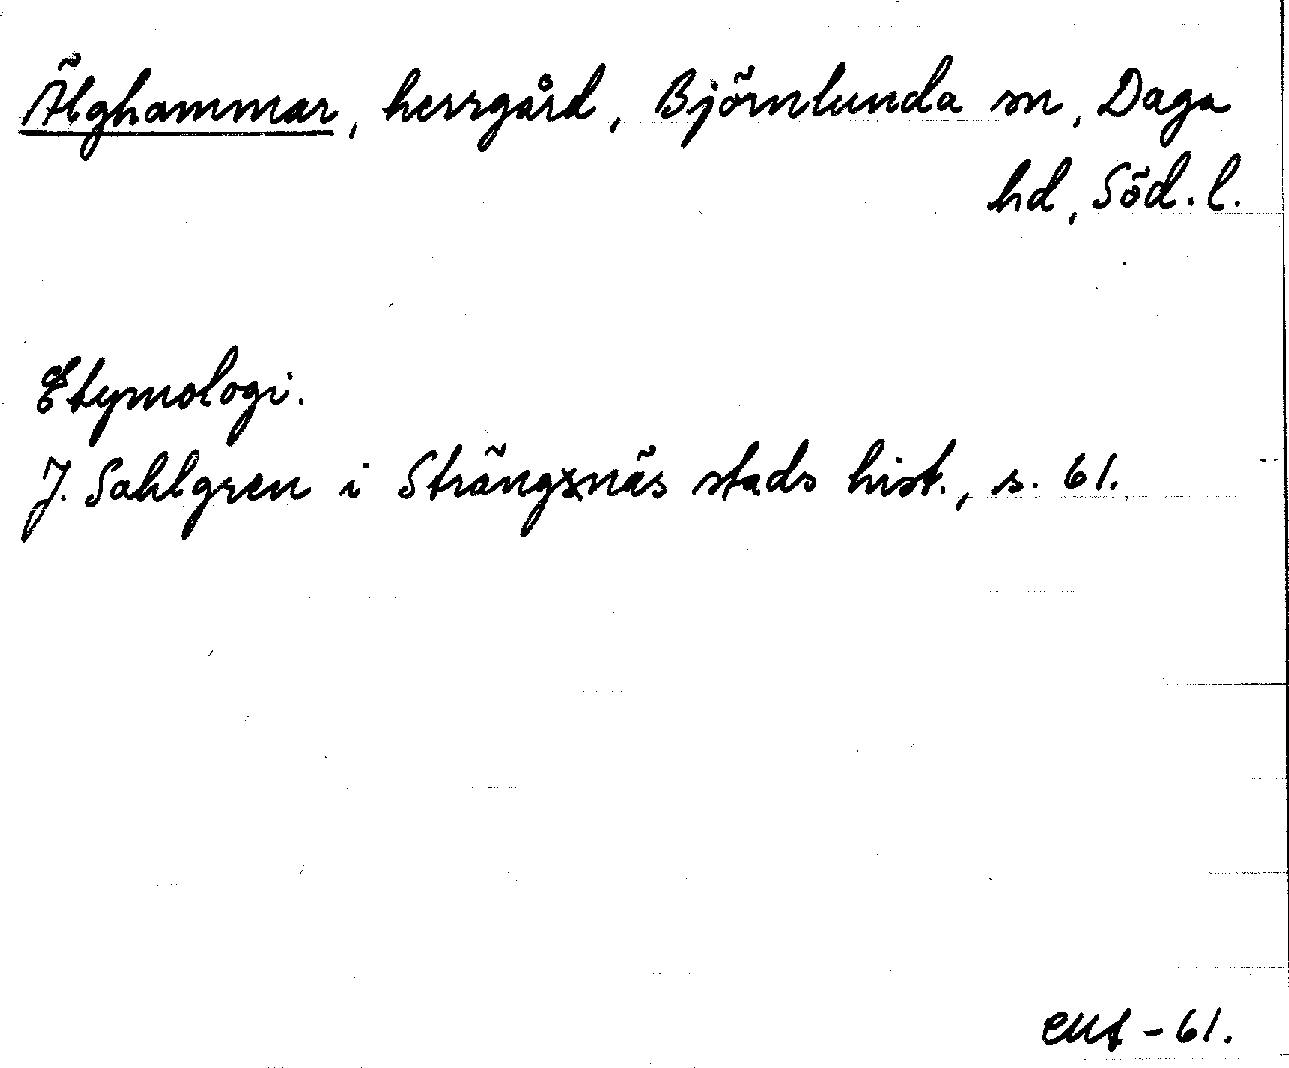 Älghammar, herrgård, Björnlunda sn, Daga
hd, Söd. l.
Etymologi.
J. Sahlgren i Strängsnäs stads hist., s. 61.
-61.